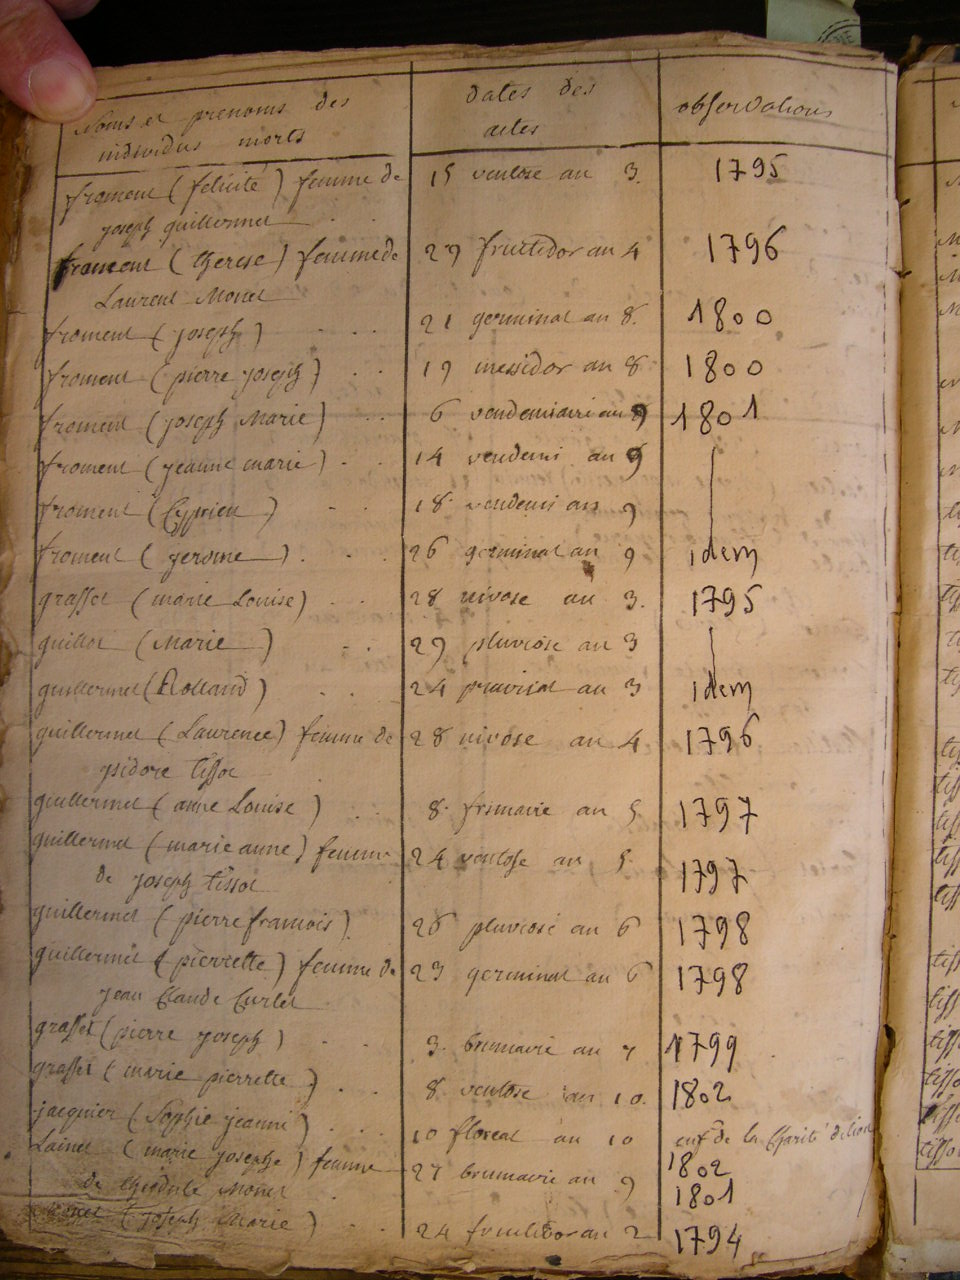 Noms et prenoms des individus morts
dates des actes
observations
froment (felicité) femme de 15 ventose an 3. 1795
joseph guillermet
froment (therese) femme de 29 fructidor an 4 1796
Laurent Monet
froment (joseph) 21 germinal an 8. 1800
froment (pierre joseph) 19 messidor an 8 1800
froment (joseph Marie) 6 vendemiaire an 9 1801
froment (jeanne marie) 14 vendemi an 9
froment (Cyprien) 18 vendemi an 9
froment (jerome) 26 germinal an 9 idem
grasset (marie Louise) 28 nivose an 3. 1795
guillot (Marie) 29 pluviose an 3
guillermet (Rolland) 24 prairial an 3 idem
guillermet (Laurence) femme de 28 nivose an 4 1796
ysidore tissot
guillermet (anne Louise) 8 frimaire an 5 1797
guillermet (marie anne) femme 24 ventose an 5 1797
de joseph tissot
guillermet (pierre francois) 26 pluviose an 6 1798
guillermet (pierrette) femme de 23 germinal an 6 1798
jean Claude Curlet
grasset (pierre joseph) 3 brumaire an 7 1799
grasset (marie pierrette) 8 ventose an 10. 1802
jacquier (Sophie jeanne) 10 floreal an 10 enf de la Charité de lion
1802
Lainet (marie josephe) femme 27 brumaire an 9 1801
de theodule Monet
monet (joseph Marie) 24 fructidor an 2 1794